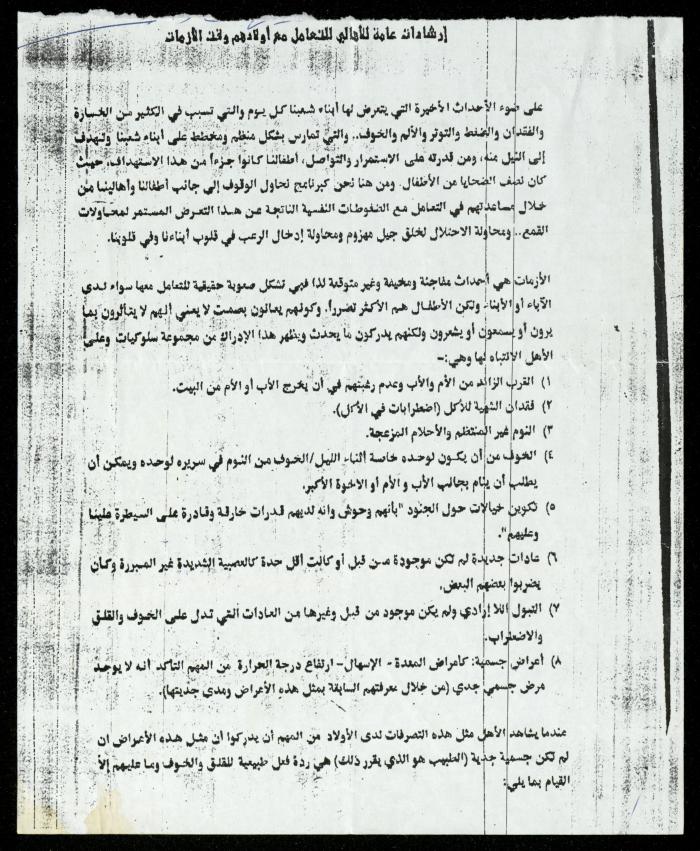 إرشادات عامة للأهالي للتعامل مع أولادهم وقت الأزمات
على ضوء الأحداث الأخيرة التي يتعرض لها أبناء شعبنا كل يوم والتي تسبب في الكثير من الخسارة
والفقدان والضغط والتوتر والألم والخوف.. والتي تمارس بشكل منظم ومخطط على أبناء شعبنا وتهدف
إلى النيل منه، ومن قدرته على الاستمرار والتواصل، أطفالنا كانوا جزءاً من هذا الاستهداف، حيث
كان نصف الضحايا من الأطفال. ومن هنا نحن كبرنامج نحاول الوقوف إلى جانب أطفالنا وأهالينا من
خلال مساعدتهم في التعامل مع الضغوطات النفسية الناتجة عن هذا التعرض المستمر لمحاولات
القمع.. ومحاولة الاحتلال لخلق جيل مهزوم ومحاولة إدخال الرعب في قلوب أبناءنا وفي قلوبنا.
الأزمات هي أحداث مفاجئة ومخيفة وغير متوقعة لذا فهي تشكل صعوبة حقيقية للتعامل معها سواء لدى
الآباء أو الأبناء ولكن الأطفال هم الأكثر تضرراً. وكونهم يعانون بصمت لا يعني أنهم لا يتأثرون بما
يرون أو يسمعون أو يشعرون ولكنهم يدركون ما يحدث ويظهر هذا الإدراك من مجموعة سلوكيات وعلى
الأهل الانتباه لها وهي:-
١) القرب الزائد من الأم والأب وعدم رغبتهم في أن يخرج الأب أو الأم من البيت.
٢) فقدان الشهية للأكل (اضطرابات في الأكل).
٣) النوم غير المنتظم والأحلام المزعجة.
٤) الخوف من أن يكون لوحده خاصة أثناء الليل/الخوف من النوم في سريره لوحده ويمكن أن
يطلب أن ينام بجانب الأب و الأم أو الاخوة الأكبر.
٥) تكوين خيالات حول الجنود "بأنهم وحوش وانه لديهم قدرات خارقة وقادرة على السيطرة علينا
وعليهم".
٦) عادات جديدة لم تكن موجودة من قبل أو كانت أقل حدة كالعصبية الشديدة غير المبررة وكأن
يضربوا بعضهم البعض.
٧) التبول اللا إرادي ولم يكن موجود من قبل وغيرها من العادات التي تدل على الخوف والقلق
والاضطراب.
٨) أعراض جسمية: كأمراض المعدة - الإسهال- ارتفاع درجة الحرارة من المهم التأكد أنه لا يوجد
مرض جسمي جدي (من خلال معرفتهم السابقة بمثل هذه الأعراض ومدى جديتها).
عندما يشاهد الأهل مثل هذه التصرفات لدى الأولاد من المهم أن يدركوا أن مثل هذه الأعراض ان
لم تكن جسمية جدية (الطبيب هو الذي يقرر ذلك) هي ردة فعل طبيعية للقلق والخوف وما عليهم إلاّ
القيام بما يلي: